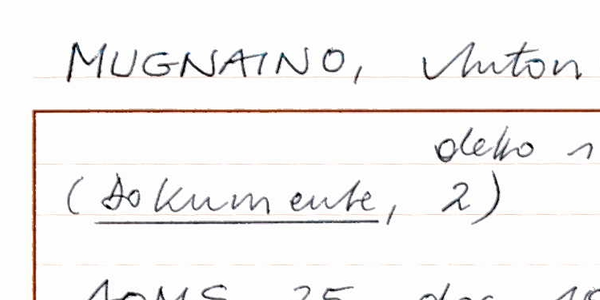 MUGNAINO, Anton
detto
(Dokumente, 2)
25 dec